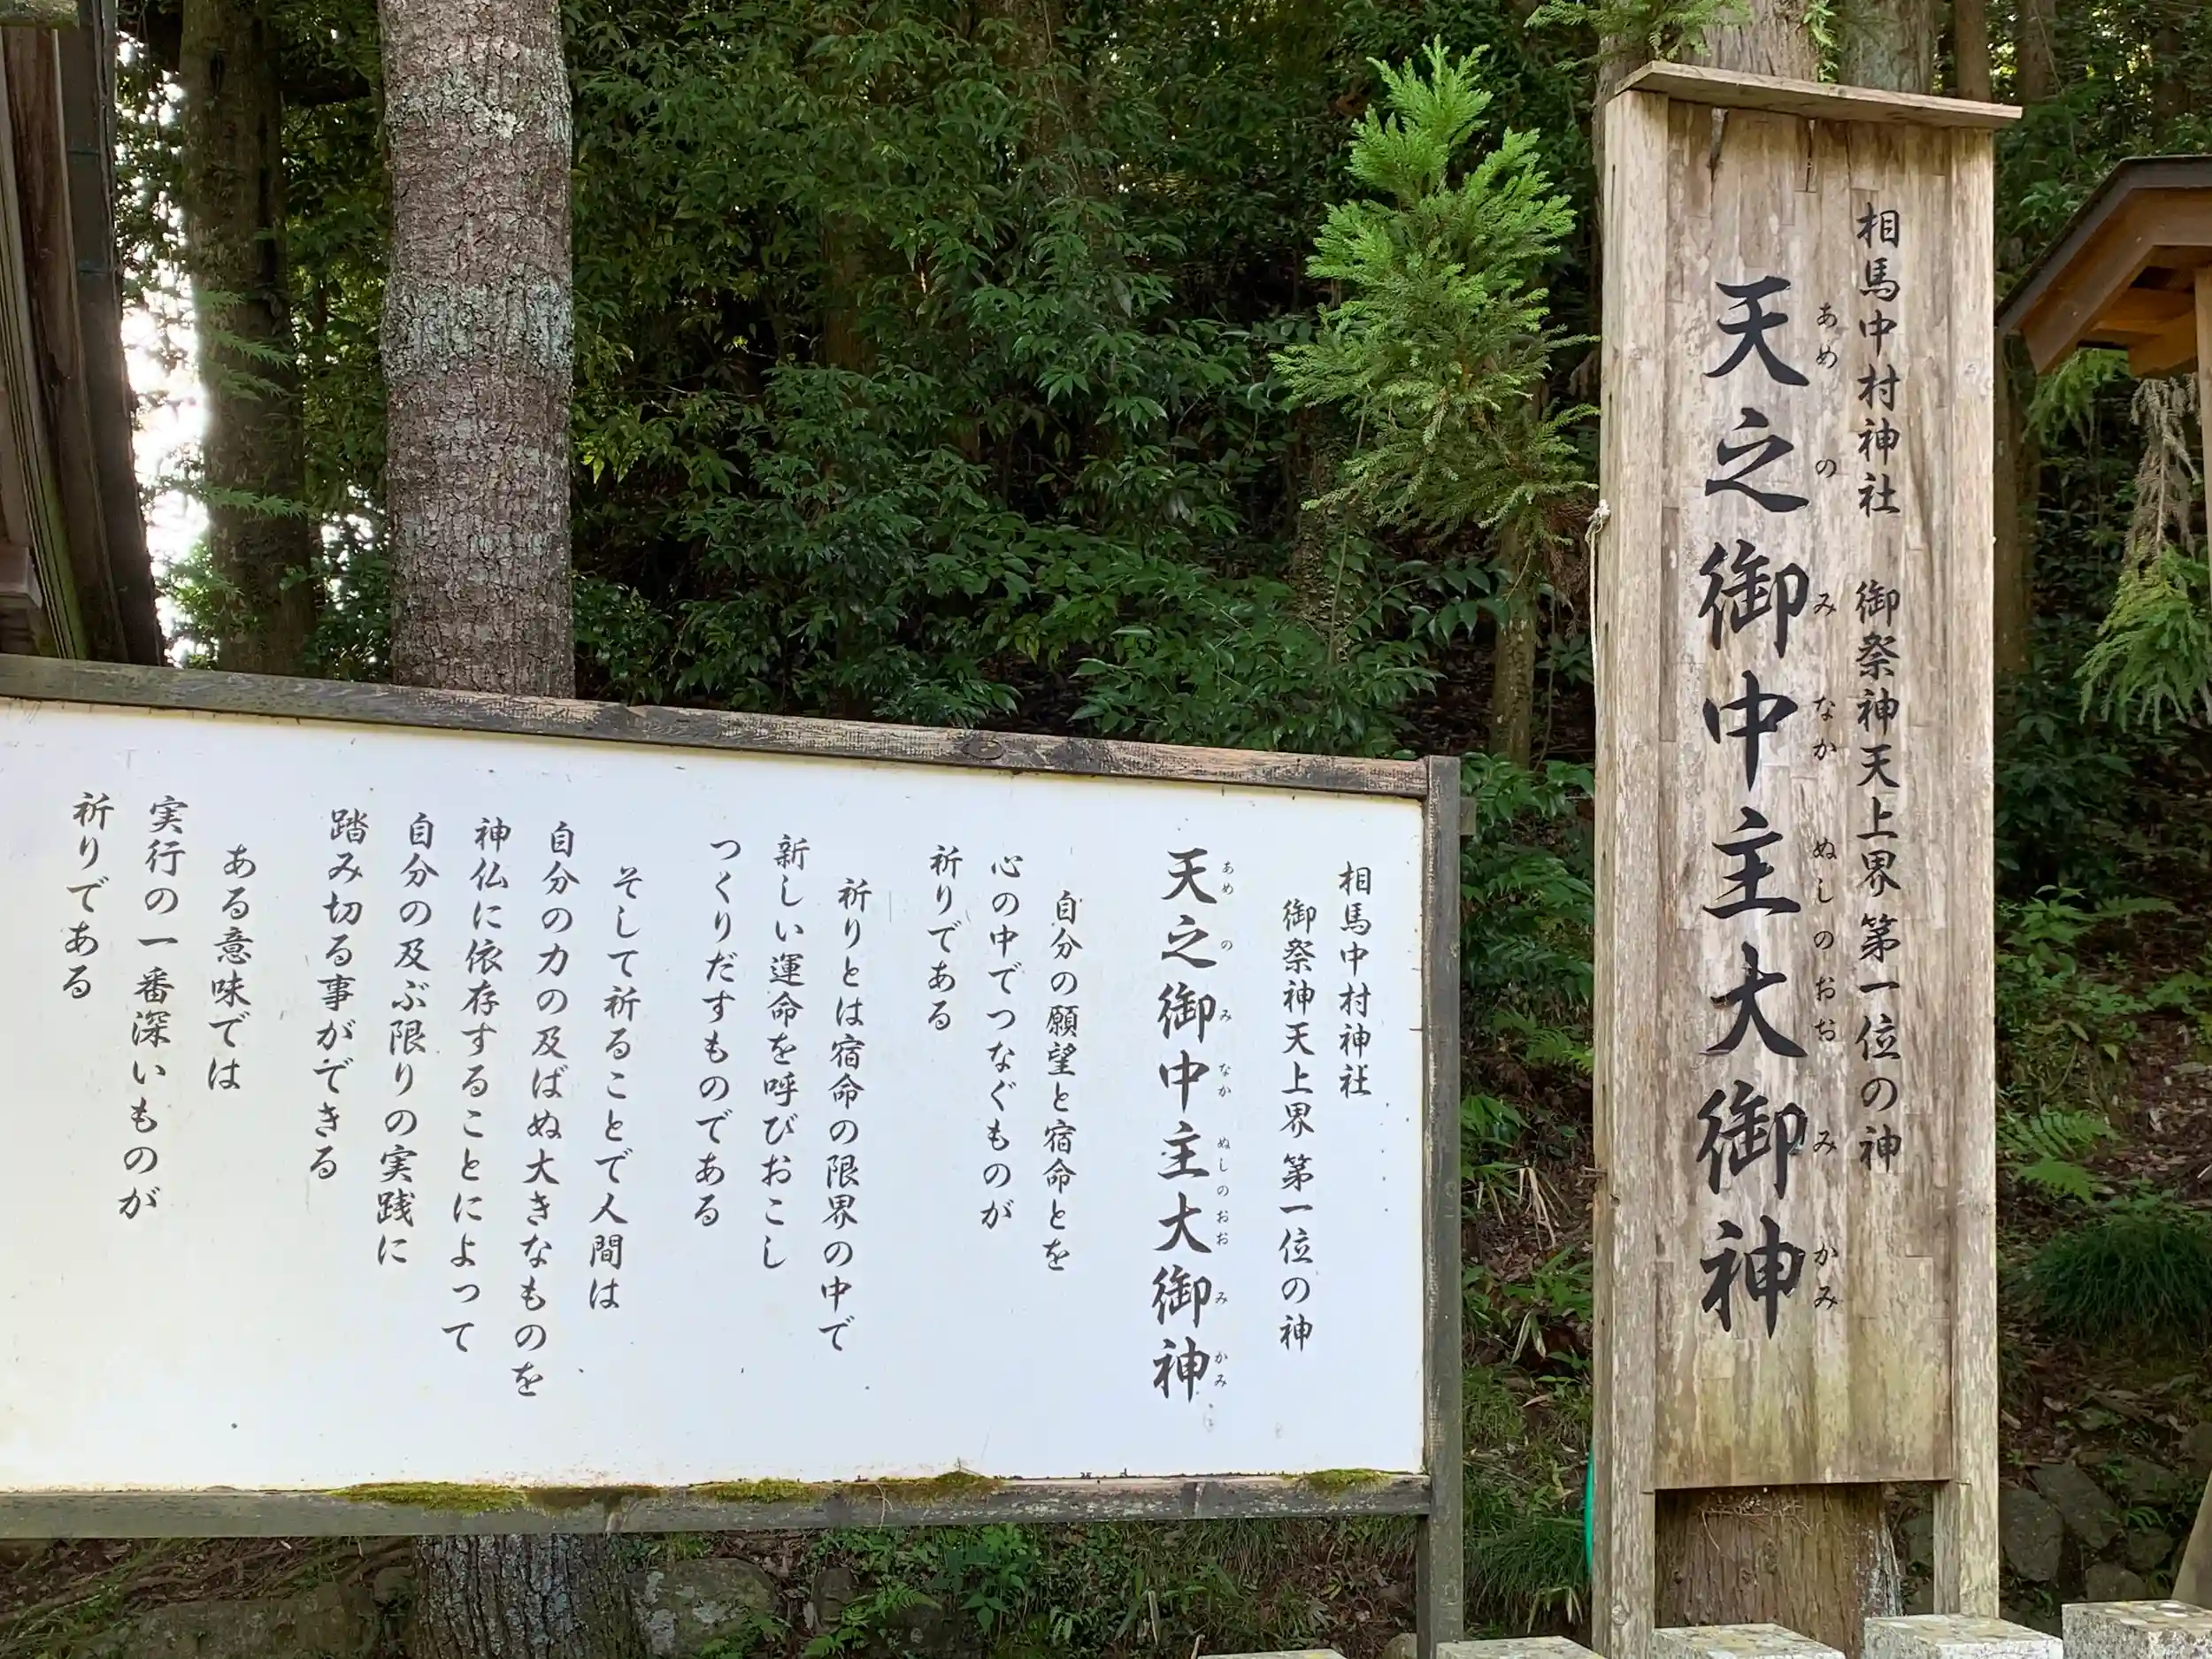 相馬中村神社 御祭神天上界第一位の神
天之御中主大御神
あめ の み なか ぬしのおお み かみ
相馬中村神社
御祭神天上界第一位の神
天之御中主大御神
あめ の み なか ぬしのおお み かみ
自分の願望と宿命とを
心の中でつなぐものが
祈りである
祈りとは宿命の限界の中で
新しい運命を呼びおこし
つくりだすものである
そして祈ることで人間は
自分の力の及ばぬ大きなものを
神仏に依存することによって
自分の及ぶ限りの実践に
踏み切る事ができる
ある意味では
実行の一番深いものが
祈りである